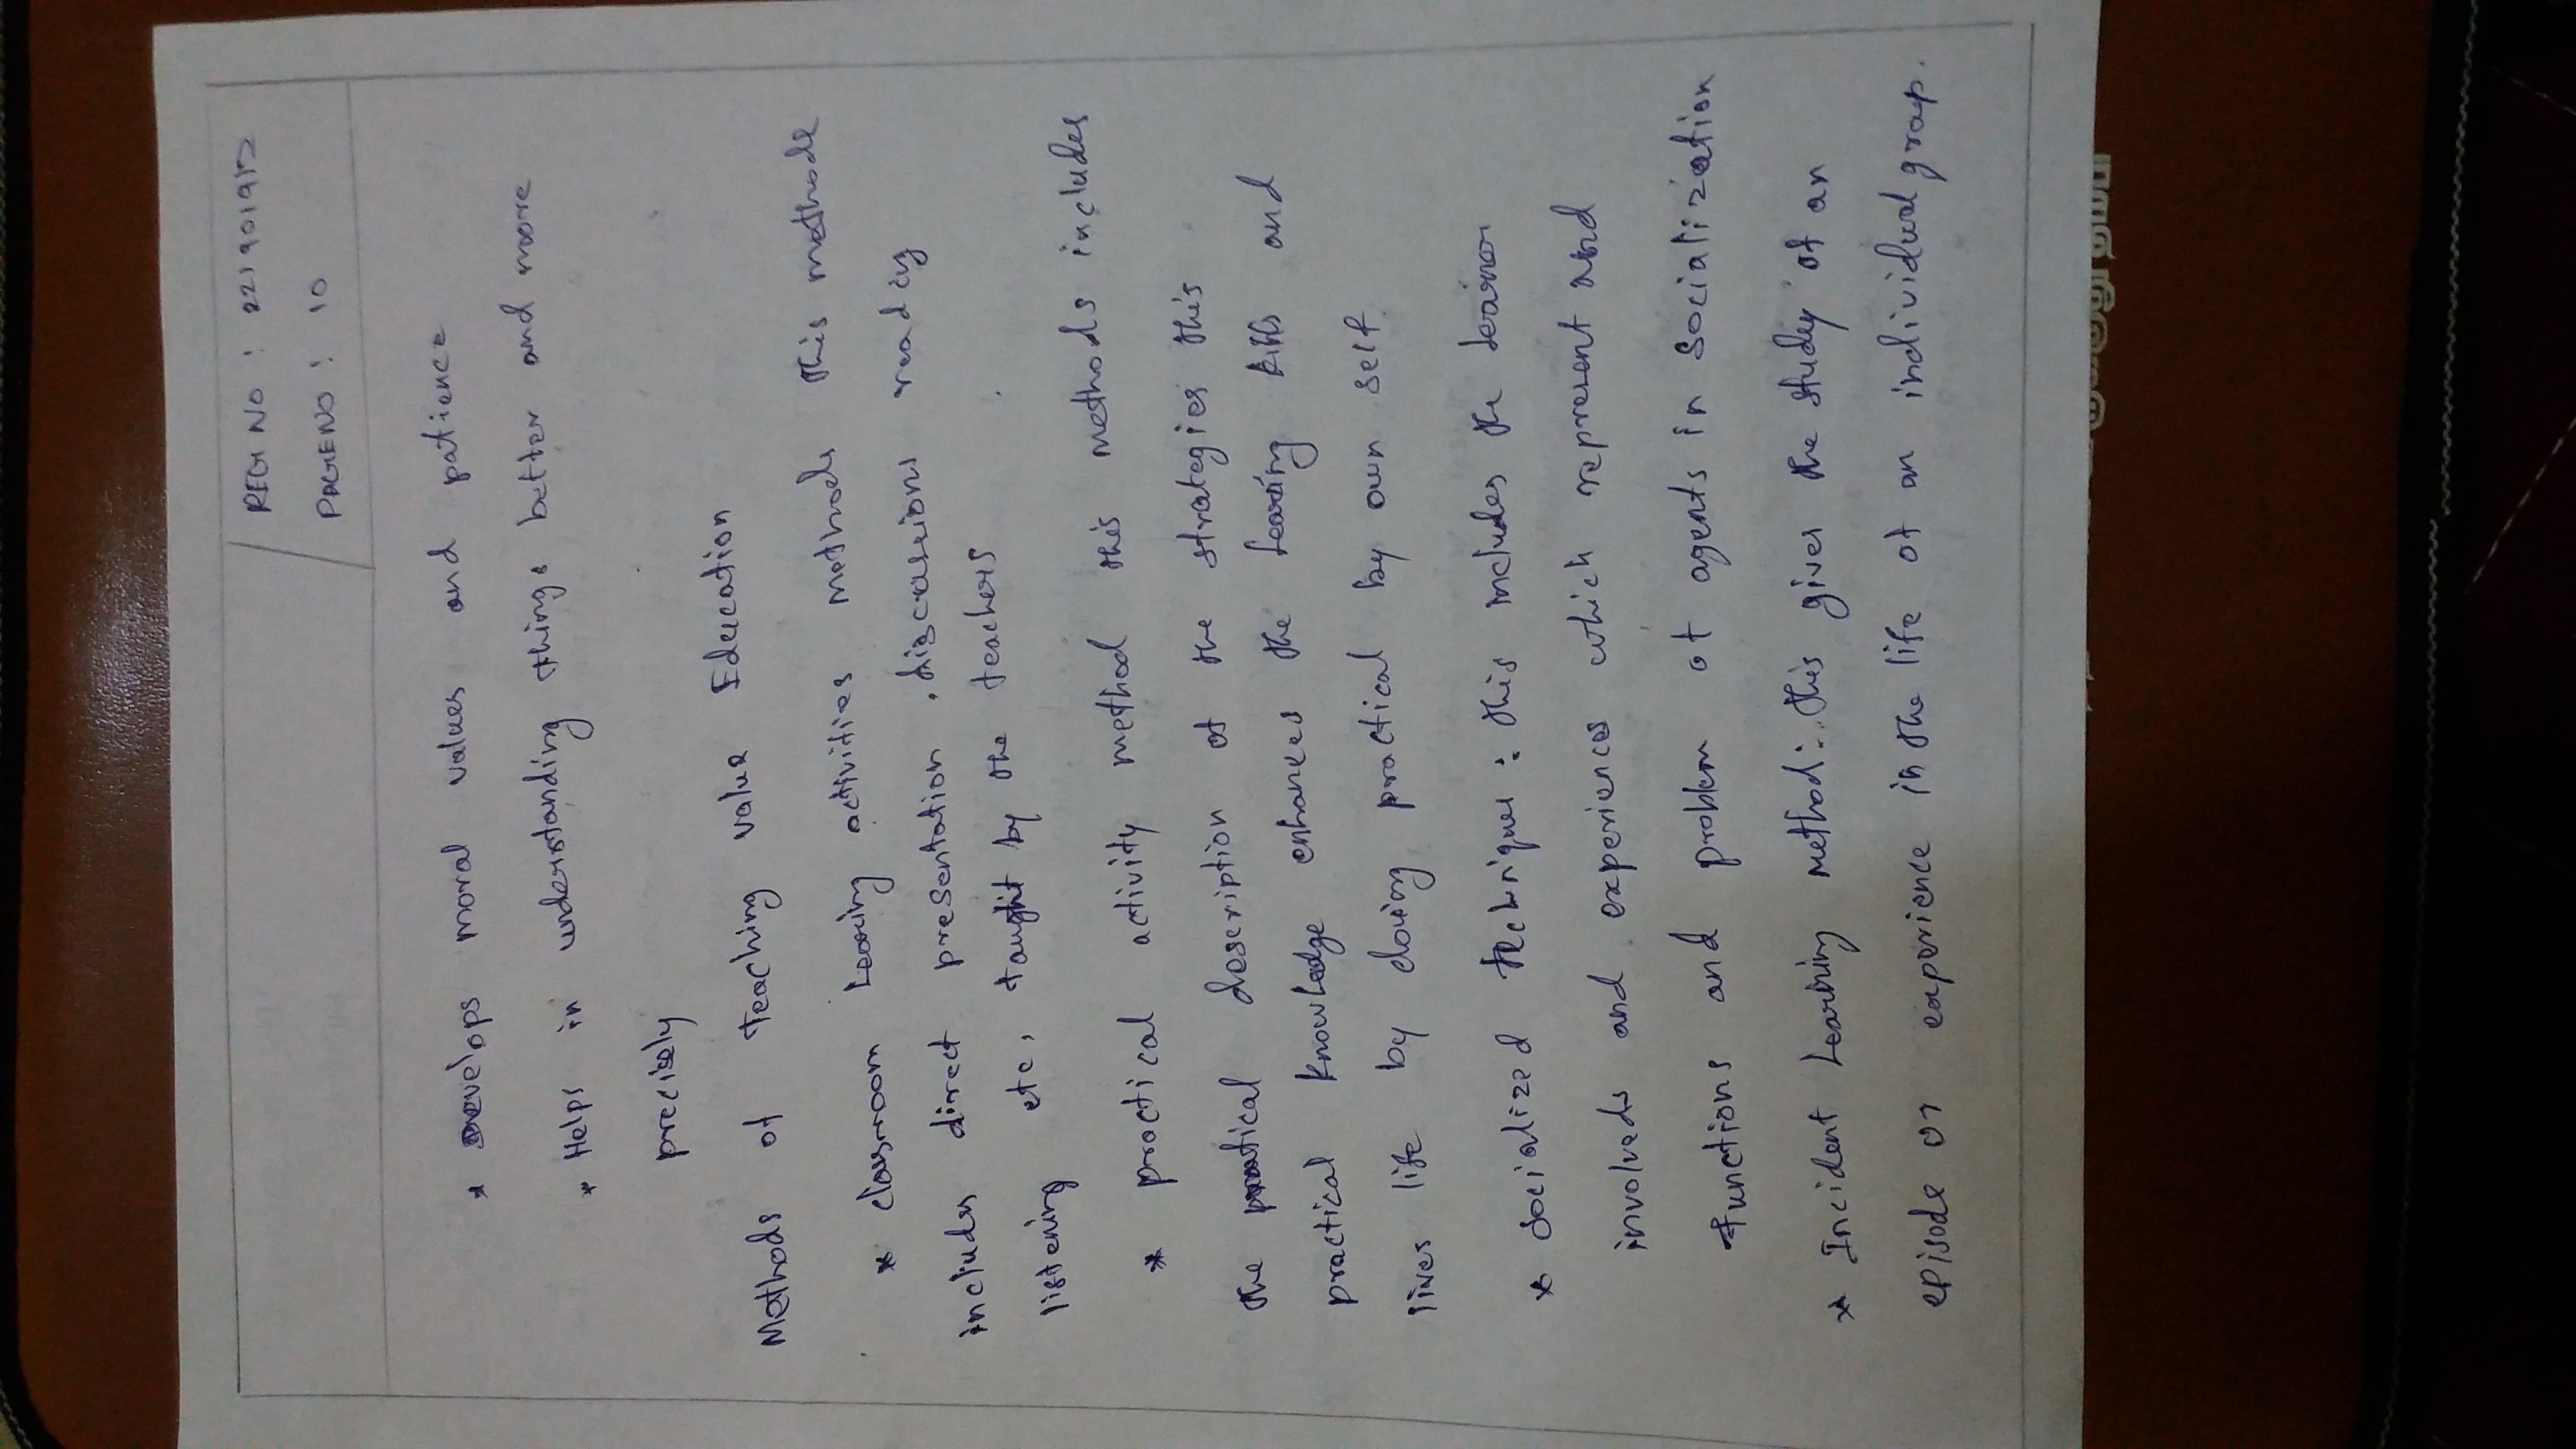 REG NO : 221901912
PAGE NO : 10
* Develops moral values and patience
* Helps in understanding things better and more
precisely
Methods of Teaching value Education
* classroom Learing activities methods this methods
includes direct presentation , discussions reading
listening etc, taught by the teachers
* practical activity method this methods includes
the practical description of the strategies this
practical knowledge enhances the Learing skills and
lives life by doing practical by own self.
* Socialized Techniques : this includes the Learnor
involveds and experiences which represent and
Functions and problem of agents in Socialization
* Incident Learning method : this gives the study of an
episode or experience in the life of an individual group.